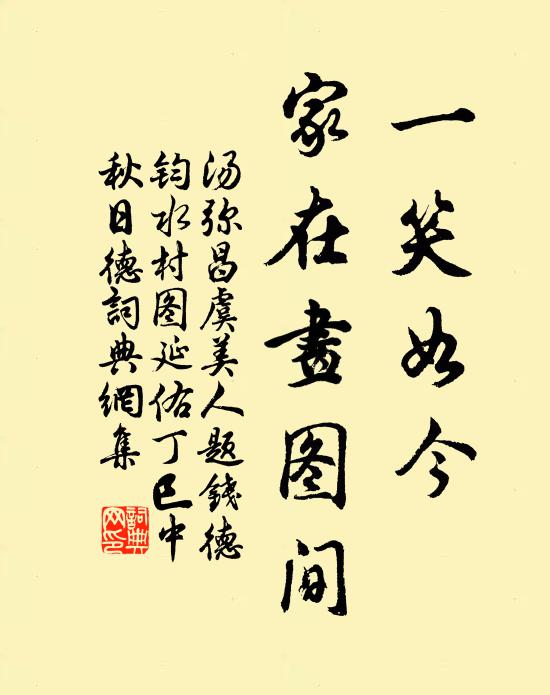 一笑如今
家在畫图间
汤弥昌虞美人题錢德
钧水村图延佑丁巳中
秋日德詞典網集
詞典
网印